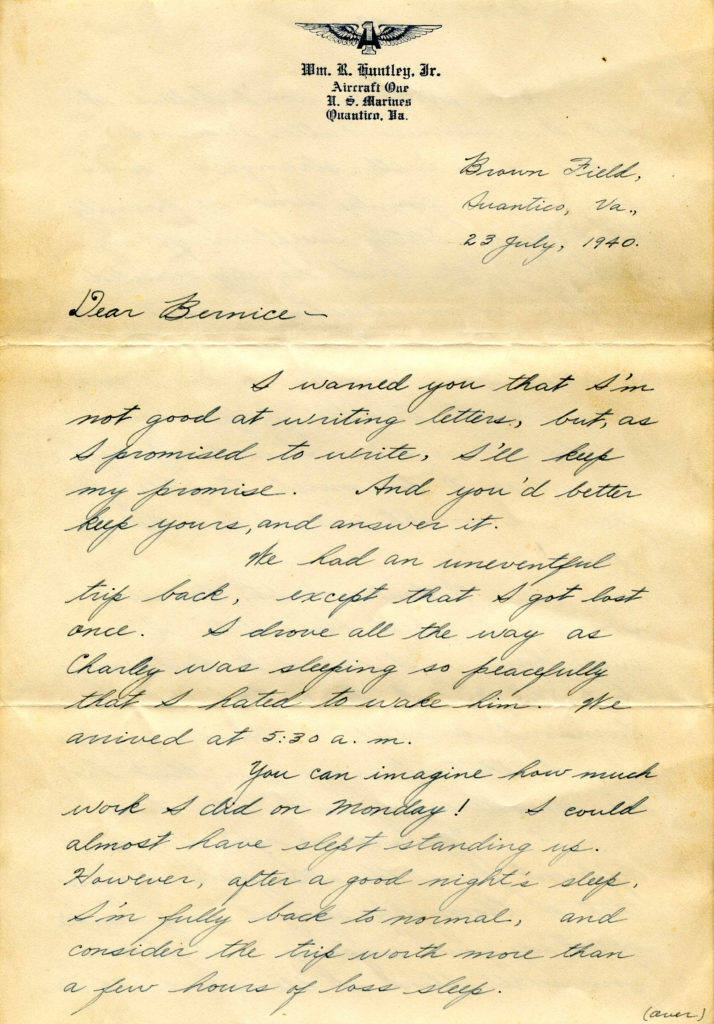 1
Wm. R. Huntley, Jr.
Aircraft One
U. S. Marines
Quantico, Va.
Brown Field,
Quantico, Va.,
23 July, 1940.
Dear Bernice —
I warned you that I'm
not good at writing letters, but, as
I promised to write, I'll keep
my promise. And you'd better
keep yours, and answer it.
We had an uneventful
trip back, except that I got lost
once. I drove all the way as
Charley was sleeping so peacefully
that I hated to wake him. We
arrived at 5:30 a. m.
You can imagine how much
work I did on Monday! I could
almost have slept standing up.
However, after a good night's sleep,
I'm fully back to normal, and
consider the trip worth more than
a few hours of loss sleep.
(over)